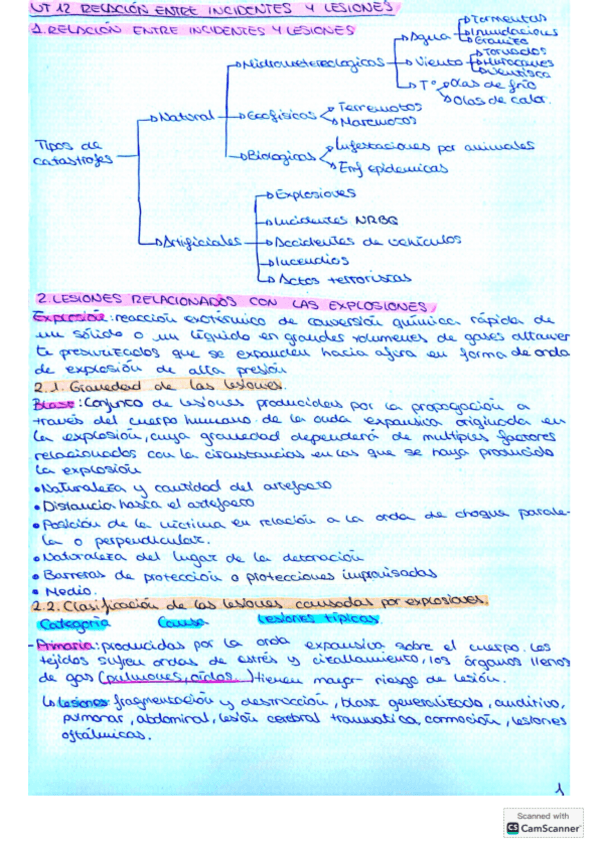 UT 12 RELACIÓN ENTRE INCIDENTES Y LESIONES
1. RELACIÓN ENTRE INCIDENTES Y LESIONES
Tipos de catastrofes
Natural
Hidrometereologicos
Agua
Tormentas
Inundacions
Granizo
Viento
Tornados
Huracanes
Ventisca
Tº
Olas de frío
Olas de calor.
Geofísicos
Terremotos
Maremotos
Biologicos
Infestaciones por animales
Enf epidemicas
Artificiales
Explosiones
Incidentes NRBQ
Accidentes de vehículos
Incendios
Actos terroristas
2. LESIONES RELACIONADOS CON LAS EXPLOSIONES
Explosión: reacción exotérmico de conversión química rápida de
un sólido o un líquido en grandes volumenes de gases altamen
te presurizados que se expanden hacia afera en forma de onda
de explosión de alta presión
2.1. Gravedad de las lesiones.
Blast: Conjunto de lesiones producidas por la propagación a
través del cuerpo humano de la onda expansiva originada en
la explosión, cuya gravedad dependerá de multiples factores
relacionados con la circunstancias en las que se haya producido
la explosión
• Naturaleza y cantidad del artefacto
• Distancia hasta el artefacto
• Posición de la víctima en relación a la onda de choque parale-
la o perpendicular.
• Naturaleza del lugar de la detonación
• Barreras de protección o protecciones improvisadas
• Medio.
2.2. Clasificación de las lesiones causadas por explosiones.
Categoría Causa Lesiones típicas
- Primaria: producidas por la onda expansiva sobre el cuerpo. Los
tejidos sufren ondas de estrés y cizallamiento, los órganos llenos
de gas (pulmones, oídos..) tienen mayor riesgo de lesión.
Lesiones: fragmentación y destrucción, blast generalizado, auditivo,
pulmonar, abdominal, lesión cerebral traumatica, conmoción, lesiones
oftálmicas.
1
Scanned with
CS CamScanner